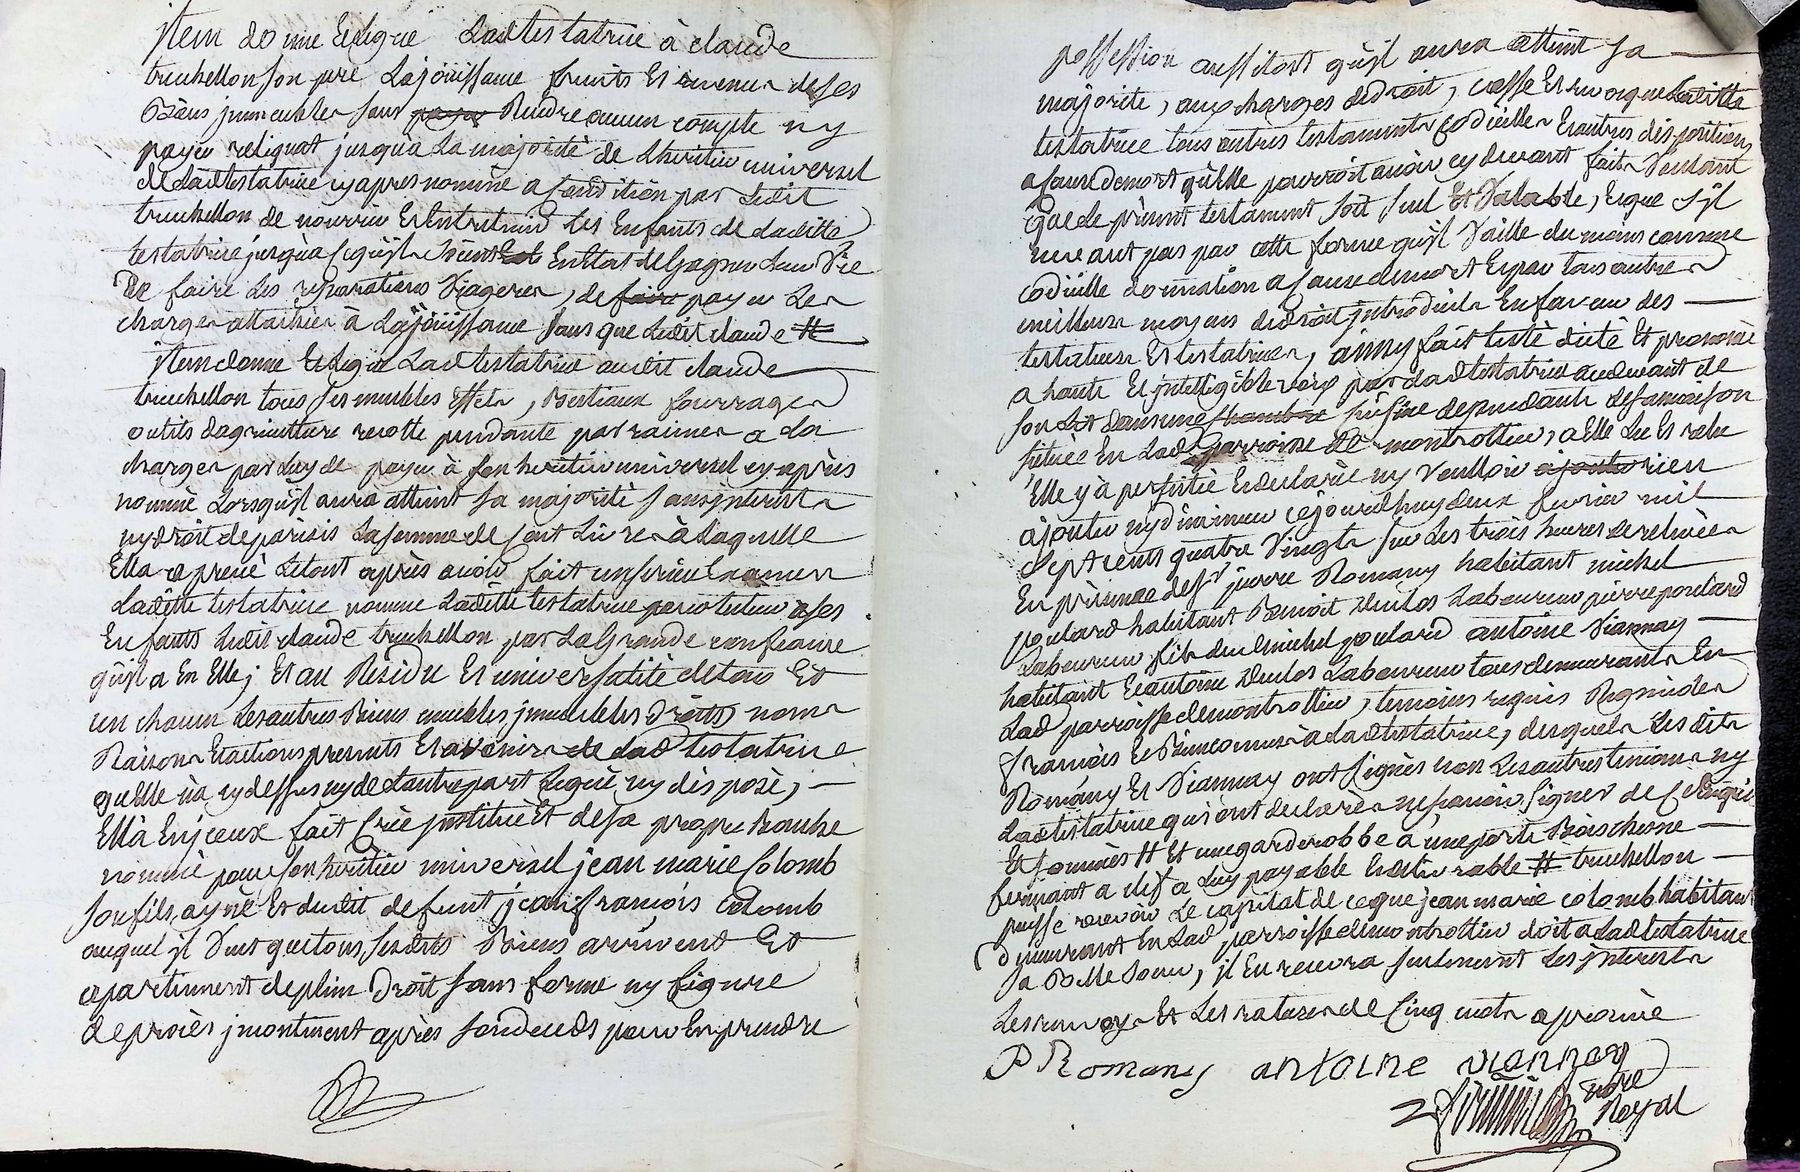 jtem donne Et legue Ladtestatrice à claude
truchellon son pere La joüissance fruits Et revenus de ses
Biens jmmeubles sans payer Rendre aucun compte ny
payer reliquat jusqua La majorité de Lheritier universel
de Ladtestatrice cy apres nommé a Condition par Ledit
truchellon de nourrir Et Entretenir Les Enfants de Laditte
testatrice jusquà ce quils soient Enétat de Gagner Leur Vie
De faire Les reparations Viageres, de faire payer Les
charges attachées à La joüissance sans que Ledit claude #
jtem donne Et Legue Ladtestatrice audit claude
truchellon tous ses meubles Effets, Bestiaux fourrages
outils dagriculture recolte pendante par racines a La
charge par Luy de payer à son heritier universel cy après
nommé Lorsquil aura atteint sa majorité sans jnterests
ny droit de parisis La somme de Cent Livres à Laquelle
Elle a apretié Letout après avoir fait un serieux Examen
Laditte testatrice nomme Laditte testatrice pour tuteur a ses
Enfants Ledit claude truchellon par La Grande confiance
quil a En Elle; Et au Residu Et universalité de tous Et
un chacun Les autres Biens meubles jmmeubles Droits noms
Raisons Et actions presents Et avenir de Lad testatrice
quelle n'a cy dessus ny de L'autre part Legué ny disposé; —
Ellà En jceux fait Créé jnstitué Et de sa propre Bouche
nommé pour son heritier universel jean marie Colomb
son fils ayné Et dudit defunt jean françois Colomb
auquel jl Veut que tous ses dits Biens arrivent Et
apartiennent de plein Droit sans forme ny figure
de procès jncontinent après son deceds pour En prendre
possession aussitost quil aura atteint sa
majorité, aux charges de droit, casse Et revoque Laditte
testatrice tous autres testaments codicilles Et autres dispositions
a Cause de mort qu'elle pourroit avoir cy devant faits Voulant
que Le présent testament soit seul Et Valable, Et que s'jl
ne vaut pas par cette forme qu'jl Vaille du moins comme
codicille donnation a Cause de mort Et par tous autres
meilleurs moyens de droit jntroduits En faveur des
testateurs Et testatrices, ainsy fait testé dicté Et prononcé
a haute Et jntelligible voix par Ladtestatrice audevant de
son Lit dans une chambre cuisine dependante de sa maison
sitüée En Lad parroisse de montrottier, a Elle Lu Et relu
Elle y a persisté Et declaré ny Vouloir ajouter rien
ajouter ny diminuer cejourdhuy deux fevrier mil
Sept cents quatre Vingts sur Les trois heures de relevée
En présence de sr pierre Romany habitant michel
poulard habitant Benoit Duclos Laboureur pierre poulard
Laboureur fils dudmichel poulard antoine Viannay
habitant Et antoine Duclos Laboureur tous demeurants En
Lad parroisse de montrottier, temoins requis Regnicoles
françois Et Bien connus a Ladtestatrice, desquels Lesdits
Romany Et Viannay ont signés non Les autres temoins ny
Ladtestatrice qui ont declarés ne sçavoir signer de Ce Enquis
Et sommés # Et une garderobbe a une porte Bois chesne
fermant a clef a Luy payable Et delivrable # truchellon
puisse recevoir Le capital de ce que jean marie colomb habitant
Demeurant En Lad parroisse de montrottier doit a Ladtestatrice
sa Belle Soeur, jl En recevra seulement Les jnterests
Les renvoys Et Les ratures de Cinq mots aprouvé
P Romany antoine viannay
nore Royal